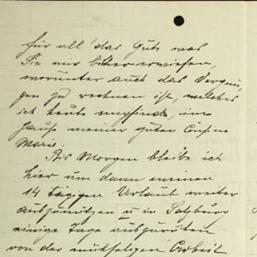 für all' das Gute was
Sie mir bisher erwiesen,
worunter auch das Vergnü-
gen zu rechnen ist, welches
ich heute empfinde, im
Hause meiner guten Cousine
Marie.
Bis Morgen bleibe ich
hier um dann meinen
14 tägigen Urlaub weiter
auszunützen u in Salzburg
einige Tage auszuruhen
von der mühseligen Arbeit